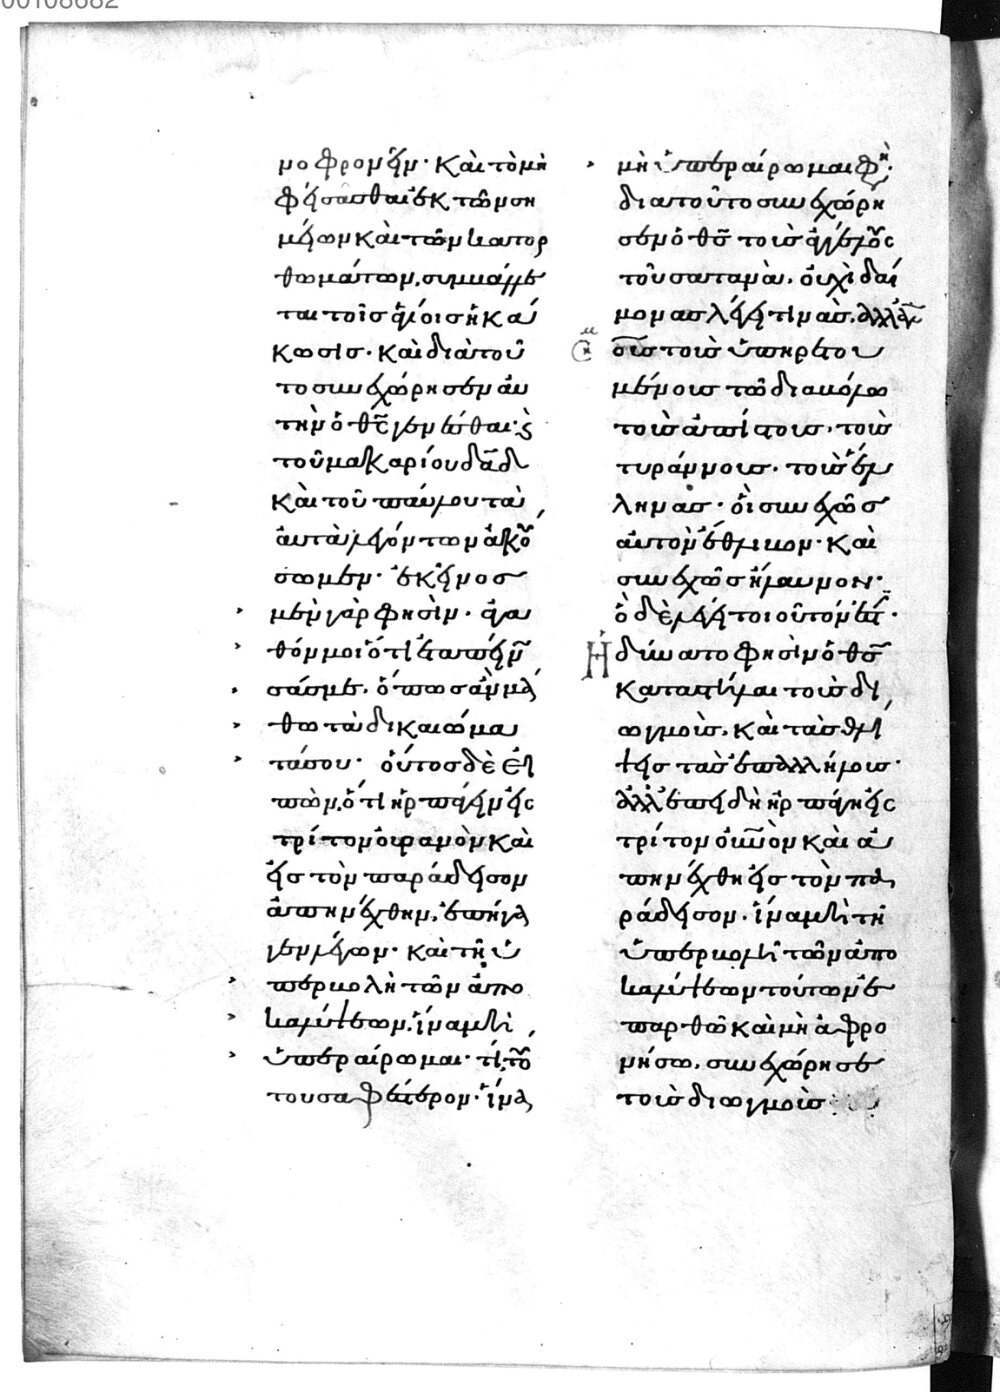 00108682
μοφρονεῖν· καὶ τὸ μὴ
φείσασθαι ἐκ τῶν ση
μείων καὶ τῶν κατορ
θωμάτων. συμμάχε
ται τοῖς ἁγίοις ἡ κά
κωσις· καὶ διὰ τοῦ
το συνεχώρησεν αὐ
τὴν ὁ θς γενέσθαι· ϛ
τοῦ μακαρίου δαδ
καὶ τοῦ παύλου ταὐ
αὐτὰ λεγόντων ἀκού
σωμεν· ἐκεῖνος
μὲν γὰρ φησὶν· ἀγα
θόν μοι ὅτι ἐταπείνω
σάς με. ὅπως ἂν μά
θω τὰ δικαιώμα
τά σου· οὗτος δὲ εἰ
πὼν, ὅτι ἡρπάγην εἰς
τρίτον οὐρανὸν καὶ
εἰς τὸν παράδεισον
ἀπηνέχθην, ἐπήγα
γεν λέγων· καὶ τῆ ὑ
περβολῆ τῶν ἀπο
καλύψεων. ἵνα μὴ
ὑπεραίρωμαι· τί τοῦ
το σαφέστερον· ἵνα
μὴ ὑπεραίρωμαι φη·
διὰ τοῦτο συνεχώρη
σεν ὁ θς τοῖς ἀγγέλοις
τοῦ σατανᾶ. οὐχὶ δαί
μονας λέγει τινὰς. ἀλλ' ἀν
οις τοῖς ὑπηρετου
μένοις τῶ διαβόλω
τοῖς ἀπίστοις. τοῖς
τυράννοις. τοῖς ἕλ
ληνας· οἳ συνεχῶς
αὐτὸν ἔθλιβον· καὶ
συνεχῶς ἤλαυνον·
ὃ δὲ λέγει τοιοῦτόν ἐστι·
Ἠδύνατο φησὶν ὁ θς
καταστεῖλαι τοὺς δι
ωγμοὺς. καὶ τὰς θλί
ψεις τὰς ἐπαλλήλους·
ἀλλ' ἐπειδὴ ἡρπάγην εἰς
τρίτον οὐνὸν καὶ ἀ
πηνέχθη εἰς τὸν πα
ράδεισον. ἵνα μὴ τῆ
ὑπερβολῆ τῶν ἀπο
καλύψεων τούτων ἐ
παρθῶ καὶ μὴ ἀφρο
νήσω. συνεχώρησε
τοὺς διωγμοὺς